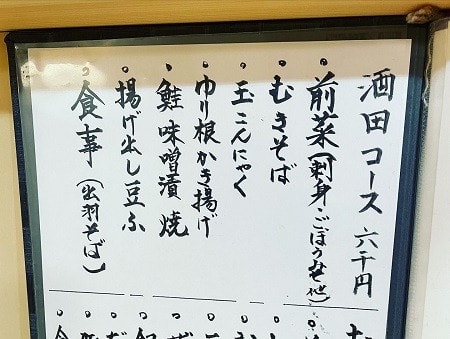 酒田コース 六千円
。前菜(刺身・ごぼう
。むきそば
。玉こんにゃく
。ゆり根かき揚げ
。鮭味噌漬焼
。揚げ出し豆ふ
。食事(出羽そば)